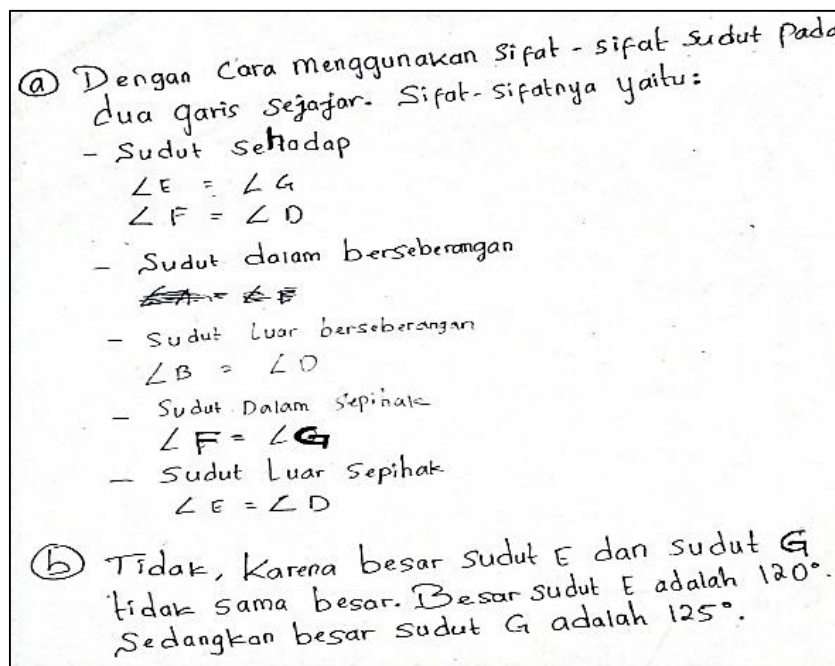 (a) Dengan Cara menggunakan Sifat - sifat sudut Pada
dua garis sejajar. Sifat-sifatnya yaitu:
- Sudut Sehadap
∠E = ∠G
∠F = ∠D
- Sudut dalam berseberangan
- Sudut Luar berseberangan
∠B = ∠D
- Sudut Dalam Sepihak
∠F = ∠G
- Sudut Luar Sepihak
∠E = ∠D
(b) Tidak, Karena besar sudut E dan sudut G
tidak sama besar. Besar sudut E adalah 120°.
Sedangkan besar sudut G adalah 125°.